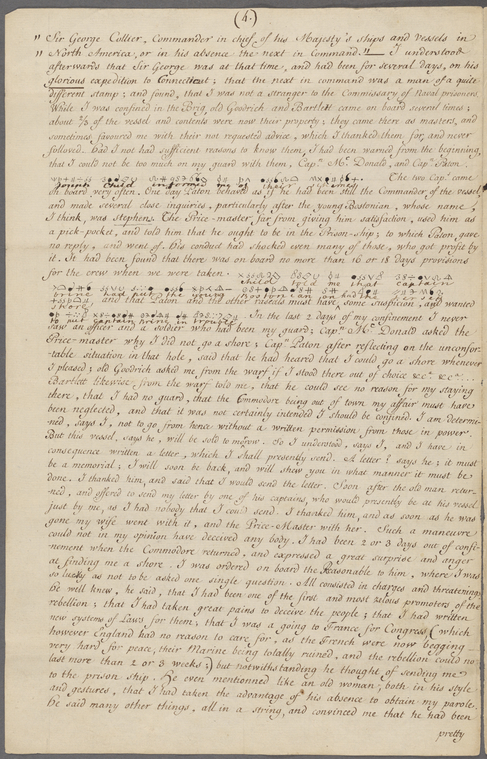 (4.)
" Sir George Collier, Commander in chief of his Majesty's ships and vessels in
" North America, or in his absence the next in Command." — I understood
afterwards that Sir George was at that time, and had been for several days, on his
glorious expedition to Connecticut; that the next in command was a man of a quite
different stamp; and found, that I was not a stranger to the Commissary of Naval prisoners.
While I was confined in the Brig, old Goodrich and Bartlett came on board several times;
about 2/3 of the vessel and contents were now their property; they came there as masters, and
sometimes favoured me with their not requested advice, which I thanked them for, and never
follow'd. Had I not had sufficient reasons to know them, I had been warned from the beginning,
that I could not be too much on my guard with them, Capn. Mc. Donald, and Capn. Paton.
young child informed me of their
The two Capns. came
on board very often. One day Paton behaved as if he had been still the Commander of the vessel,
and made several close inquiries, particularly after the young Bostonian, whose name,
I think, was Stephens. The Prize-master, far from giving him satisfaction, used him as
a pick-pocket, and told him that he ought to be in the Prison-ship; to which Paton gave
no reply, and went of. His conduct had shocked even many of those, who got profit by
it. It had been found that there was on board no more than 16 or 18 Days provisions
for the crew when we were taken.
child told me that captain
had the young bostonian on
shore
and that Paton and the other rascals must have some suspicion, and wanted
to
In the last 2 days of my confinement I never
saw an officer and a soldier who had been my guard; Capn. Mc. Donald asked the
Prize-master why I did not go a shore; Capn. Paton after reflecting on the unconfor-
table situation in that hole, said that he had heard that I could go a shore whenever
I pleased; old Goodrich asked me from the warf if I stood there out of choice &c. &c....
Bartlett likewise from the warf told me, that he could see no reason for my staying
there, that I had no guard, that the Commodore being out of town my affair must have
been neglected, and that it was not certainly intended I should be confined. I am determi-
ned, says I, not to go from hence without a written permission from those in power.
But this vessel, says he, will be sold to morow. So I understood, says I, and I have in
consequence written a letter, which I shall presently send. A letter! says he; it must
be a memorial; I will soon be back, and will shew you in what manner it must be
done. I thanked him, and said that I would send the letter. Soon after the old man retur-
ned, and offered to send my letter by one of his captains, who would presently be at his vessel
just by me, as I had nobody that I could send. I thanked him, and as soon as he was
gone my wife went with it, and the Prize-Master with her. Such a maneuvre
could not in my opinion have deceived any body. I had been 2 or 3 days out of confi-
nement when the Commodore returned, and expressed a great surprise and anger
at finding me a shore. I was ordered on board the Reasonable to him, where I was
so lucky as not to be asked one single question. All consisted in charges and threatenings.
He well knew, he said, that I had been one of the first and most zelous promoters of the
rebellion; that I had taken great pains to deceive the people; that I had written
new systems of Laws for them; that I was a going to France for Congress (which
however England had no reason to care for, as the French were now begging
very hard for peace, their Marine being totally ruined, and the rebellion could no
last more than 2 or 3 weeks;) but notwithstanding he thought of sending me
to the prison ship. He even mentionned like an old woman, both in his style
and gestures, that I had taken the advantage of his absence to obtain my parole.
He said many other things, all in a string, and convinced me that he had been
pretty